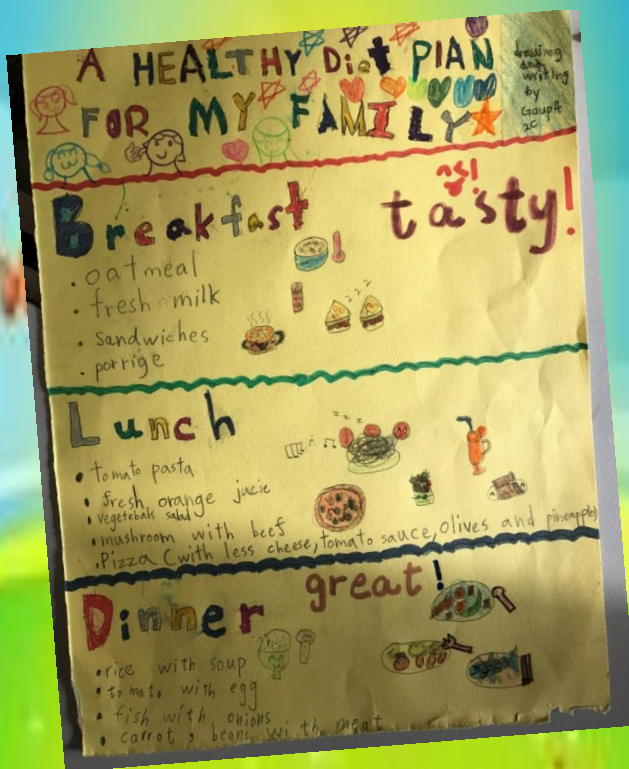 A HEALTHY Diet PlAN
FOR MY FAMILY
drawing
and
writing
by
2C
Breakfast
tasty!
. oatmeal
. fresh milk
. Sandwiches
. porrige
Lunch
• tomato pasta
• fresh orange jucie
• vegetebals salad
• mushroom with beef
. Pizza (with less cheese, tomato sauce, olives and pineapple)
great!
Dinner
• rice with soup
• tomato with egg
• fish with onions
• carrot, beans with meat